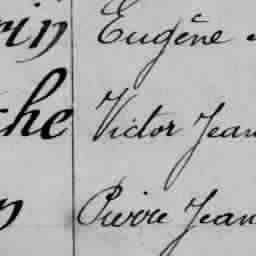 rin Eugène
che Victor Jean
n Pierre Jean